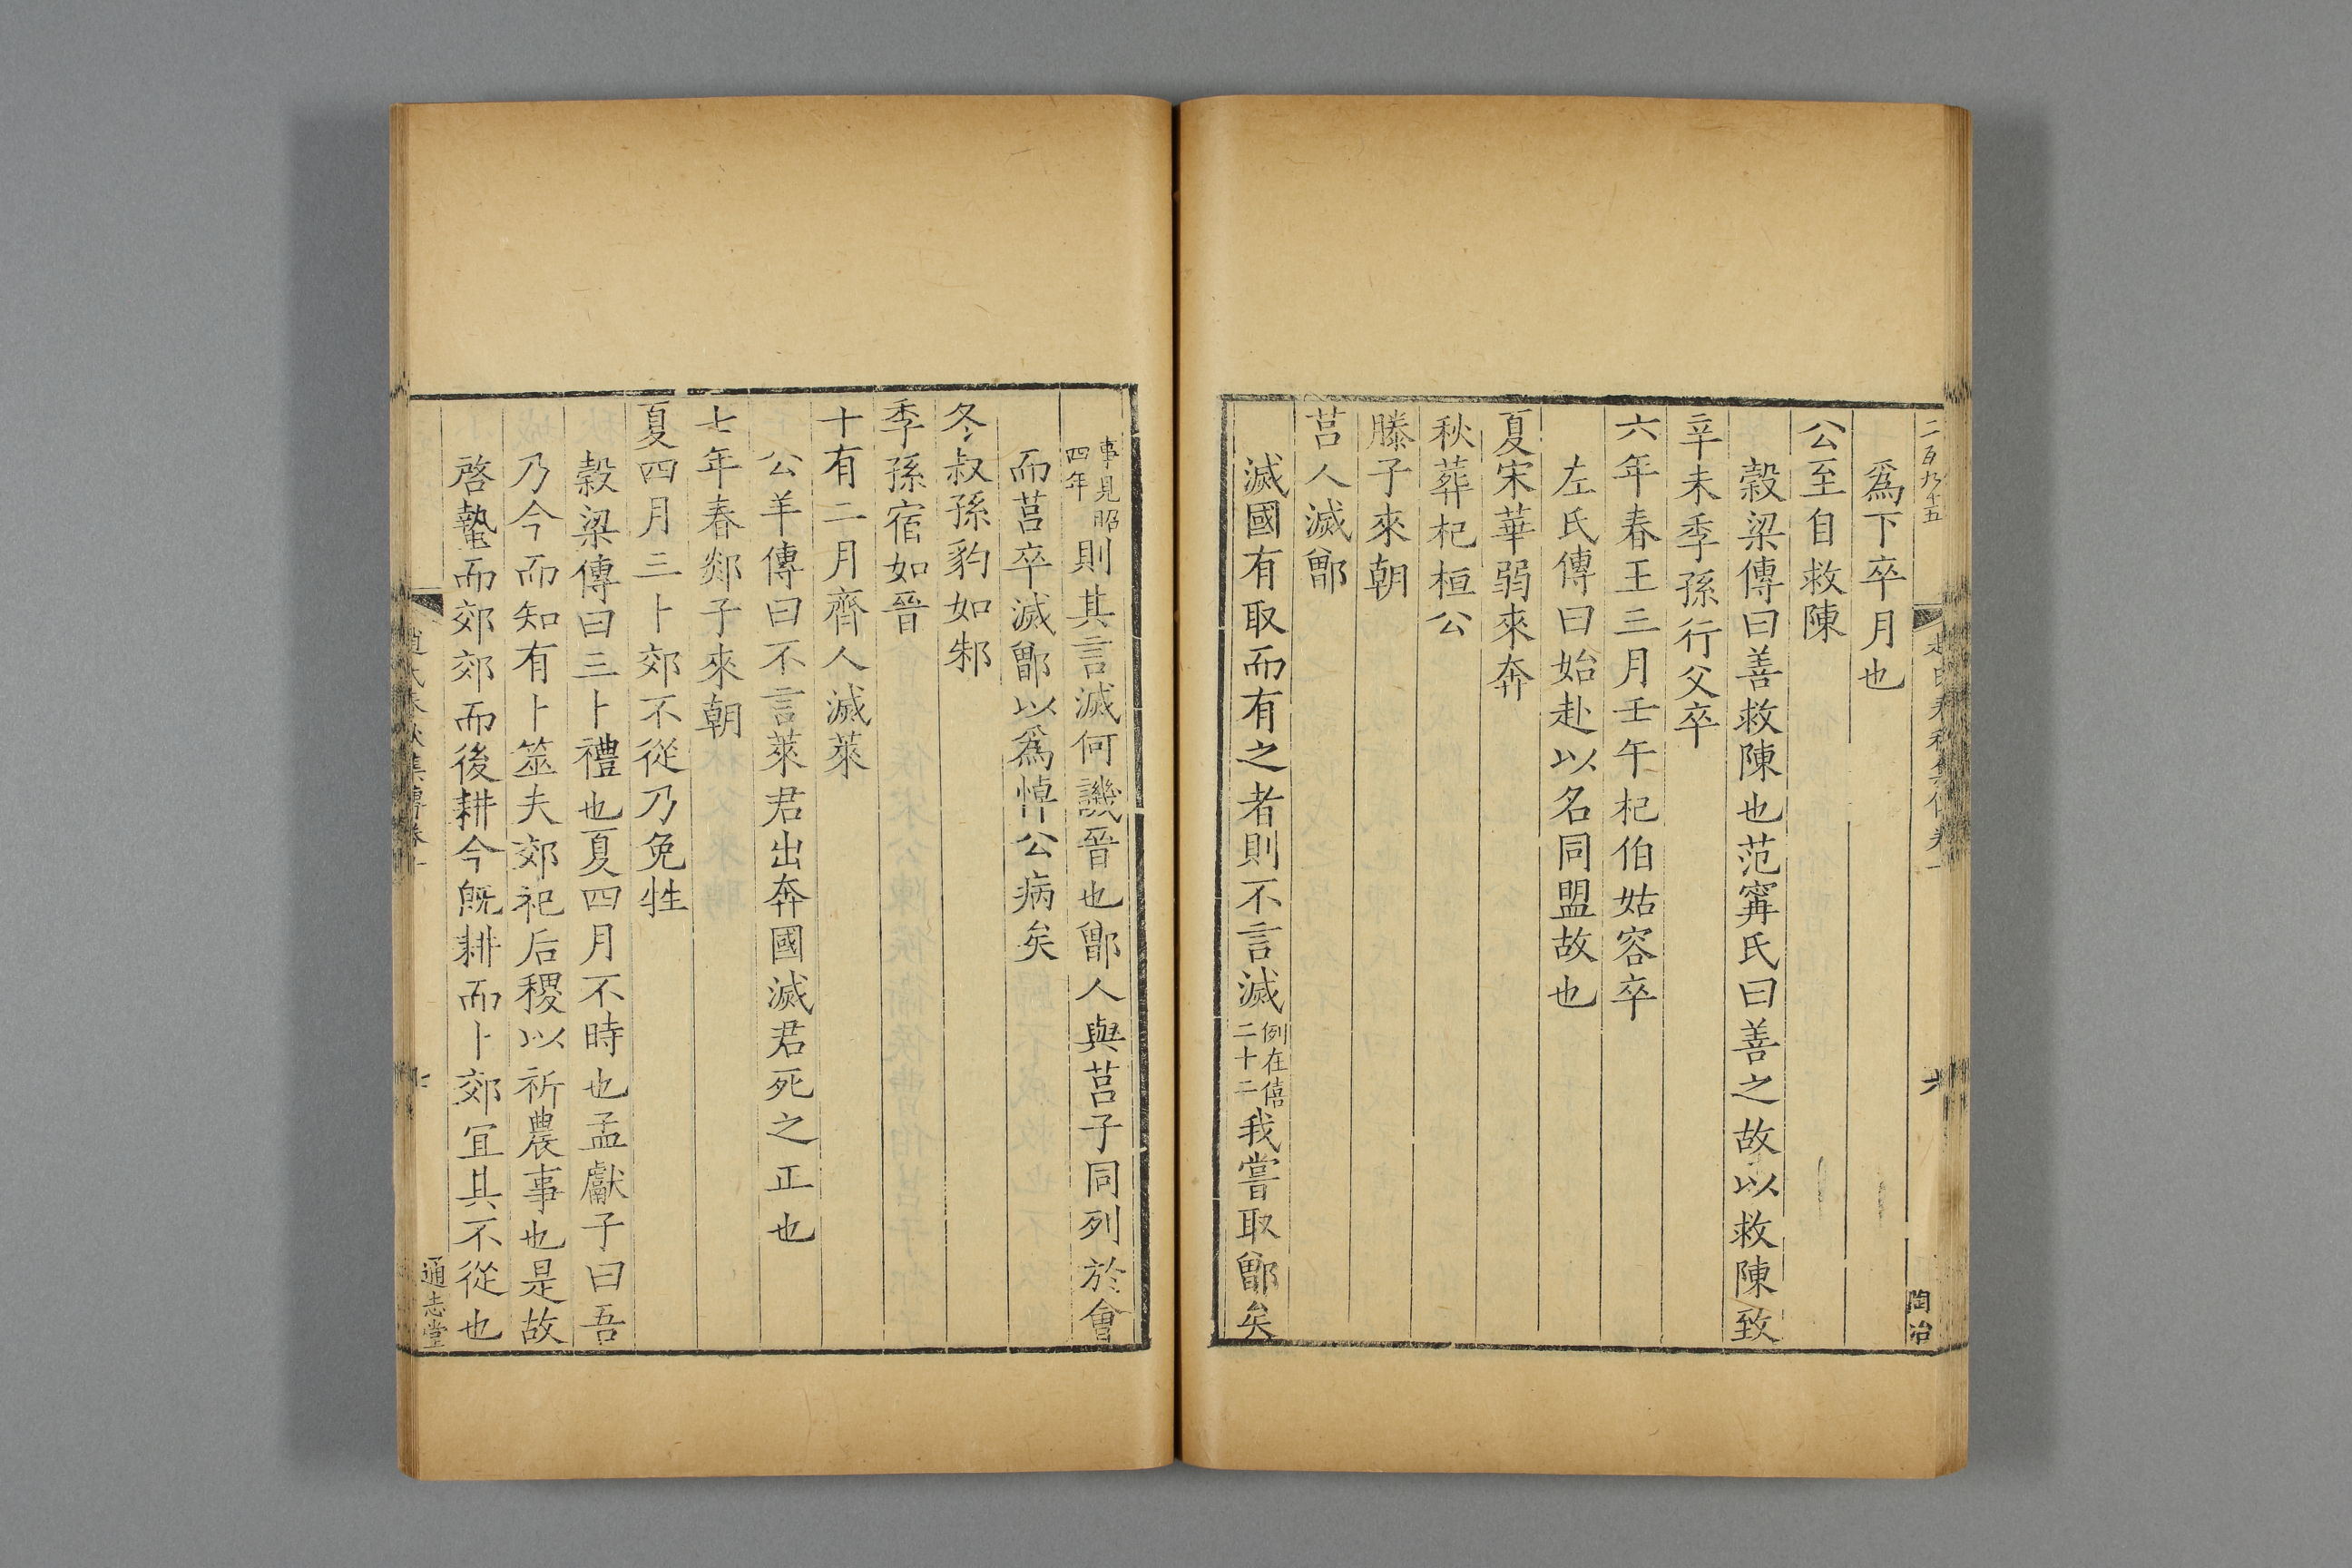 二百九十五
六
陶冶
爲下卒月也
公至自救陳
穀梁傳曰善救陳也范甯氏曰善之故以救陳致
辛未季孫行父卒
六年春王三月壬午杞伯姑容卒
左氏傳曰始赴以名同盟故也
夏宋華弱來奔
秋葬杞桓公
滕子來朝
莒人滅鄫
滅國有取而有之者則不言滅例在僖二十二我嘗取鄫矣
事見昭四年則其言滅何譏晉也鄫人與莒子同列於會
而莒卒滅鄫以爲悼公病矣
冬叔孫豹如邾
季孫宿如晉
十有二月齊人滅萊
公羊傳曰不言萊君出奔國滅君死之正也
七年春郯子來朝
夏四月三卜郊不從乃免牲
穀梁傳曰三卜禮也夏四月不時也孟獻子曰吾
乃今而知有卜筮夫郊祀后稷以祈農事也是故
啓蟄而郊郊而後耕今旣耕而卜郊宜其不從也
通志堂